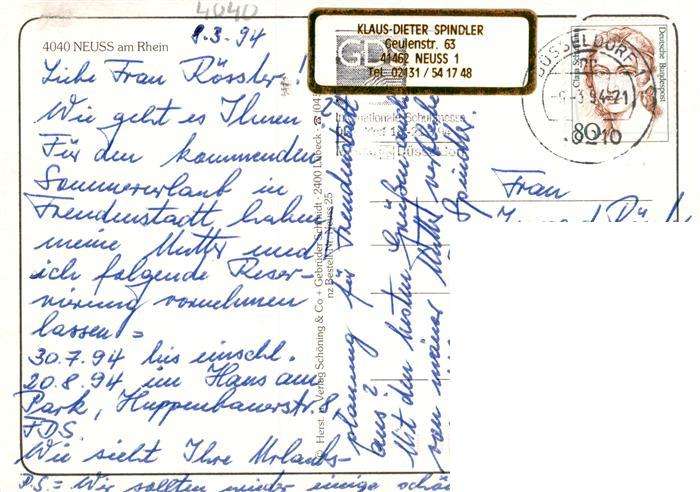 4040
8.3.94
4040 NEUSS am Rhein
KLAUS-DIETER SPINDLER
Geulenstr. 63
41462 NEUSS 1
Tel. 02131 / 54 17 48
Deutsche Bundespost
80
Liebe Frau Rössler!
Wie geht es Ihnen?
Für den kommenden
Sommerurlaub in
Freudenstadt haben
meine Mutter und
ich folgende Reser-
vierung vornehmen
lassen =
30.7.94 bis einschl.
20.8.94 im Haus am
Park, Huppenbauerstr. 8,
FDS
Wie sieht Ihre Urlaubs-
planung für Freudenstadt
aus?
Mit den besten Grüßen
von meiner Mutter
Spindler
P.S. = Wir sollten wieder einige
Frau
© Herst. u. Verlag Schöning & Co + Gebrüder Schmidt · 2400 Lübeck
nz Bestell-Nr. Neuss 25